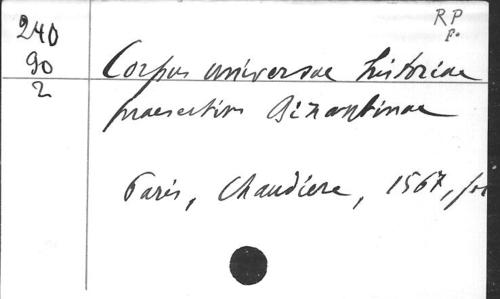 240
90
2
RP
f.
Corpus universae historiae
praesertim Bizantinae
Paris, Chaudiere, 1567, fol